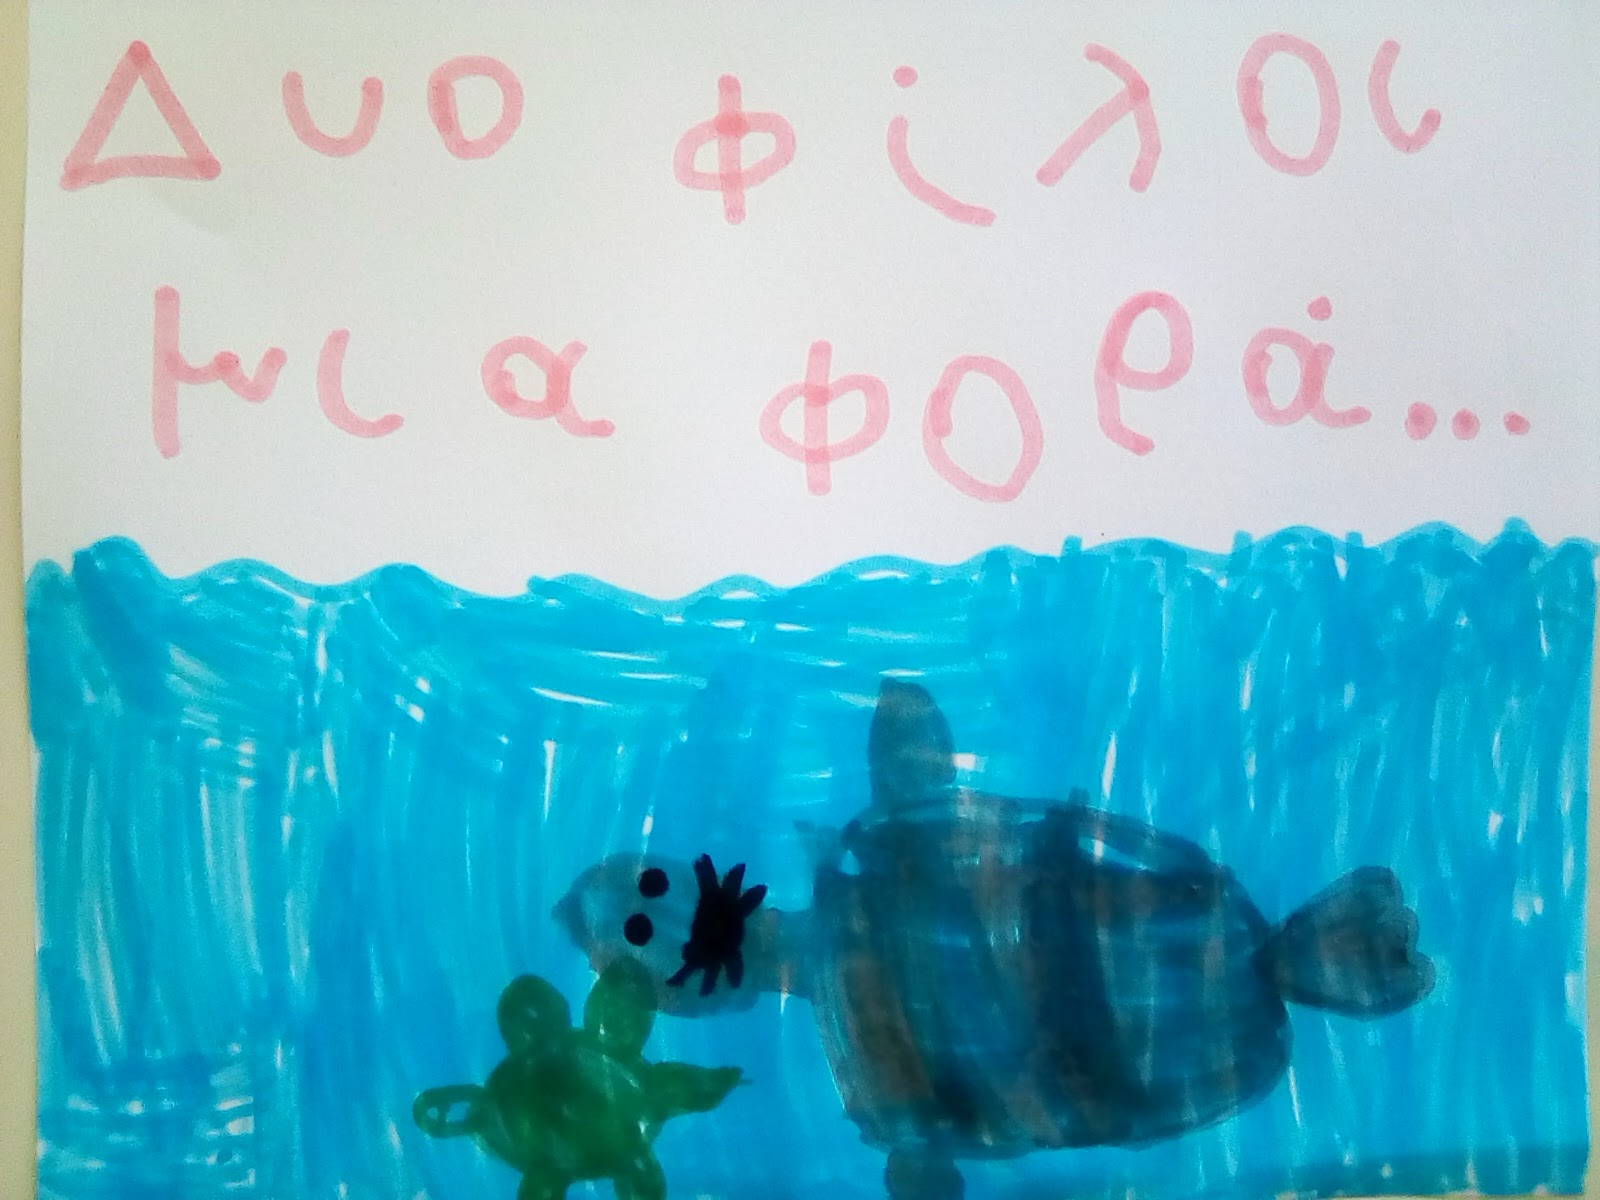 Δυο φίλοι
μια φορά...